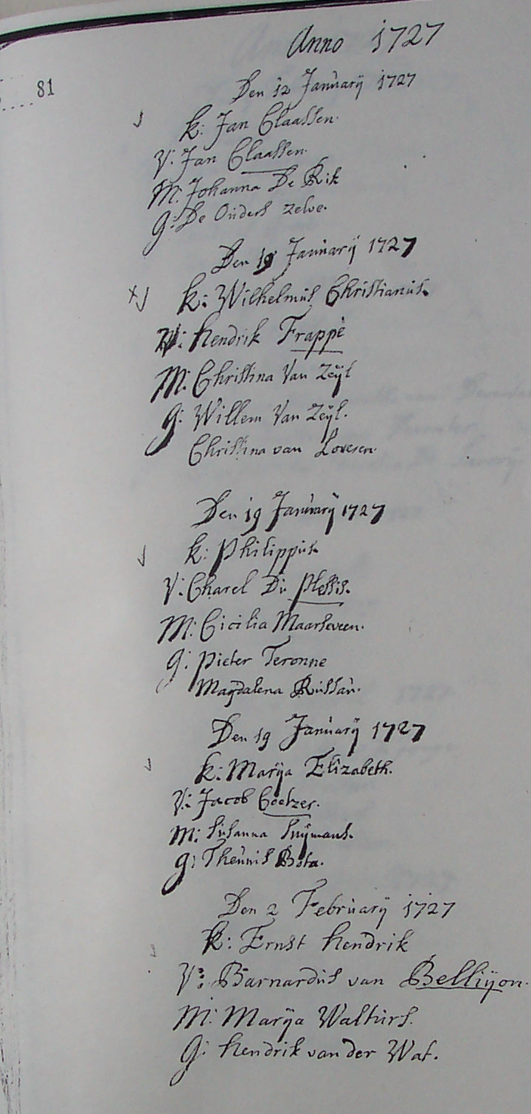 Anno 1727
81
Den 12 Januarÿ 1727
k: Jan Claassen.
V: Jan Claassen.
M: Johanna De Rik
G: De Ouders zelve.
Den 19 Januarÿ 1727
k: Wilhelmus Christianus.
V: Hendrik Frappé
M: Christina Van Zeÿl
G: Willem Van Zeÿl.
Christina van Loveren.
Den 19 Januarÿ 1727
k: Philippus.
V: Charel Du Plessis.
M: Cicilia Maarseveen.
G: Pieter Teronne
Magdalena Russau.
Den 19 Januarÿ 1727
k: Marÿa Elizabeth.
V: Jacob Coetzer.
M: Susanna Snÿmans.
G: Theunis Bota.
Den 2 Februarÿ 1727
k: Ernst Hendrik
V: Barnardus van Bellÿon.
M: Marÿa Walturs.
G: Hendrik van der Wat.